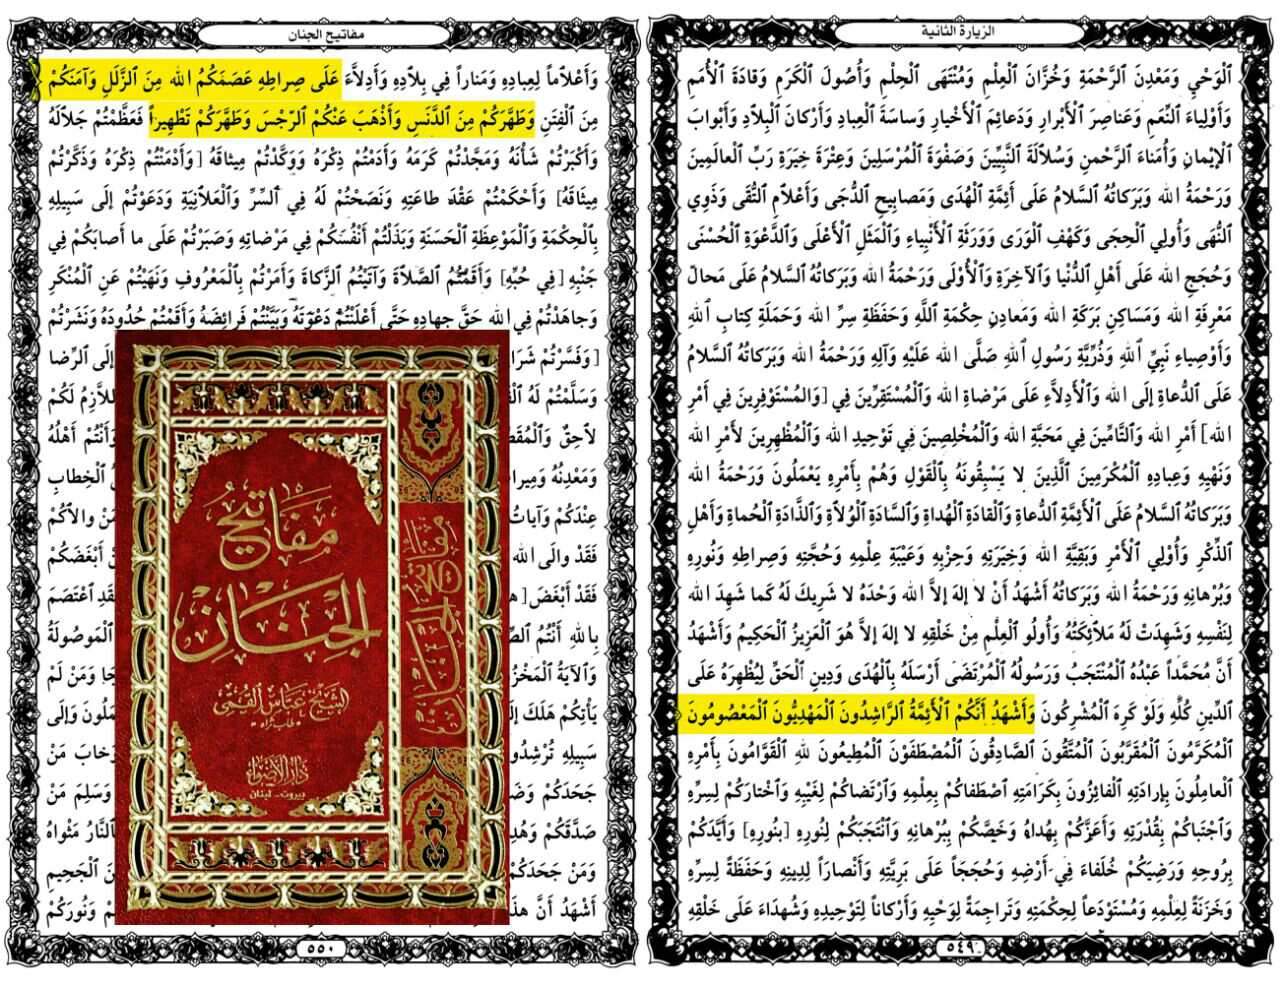 الزيارة الثانية
ٱلْوَحْيِ وَمَعْدِنَ ٱلرَّحْمَةِ وَخُزَّانَ ٱلْعِلْمِ وَمُنْتَهَى ٱلْحِلْمِ وَأُصُولَ ٱلْكَرَمِ وَقادَةَ ٱلْأُمَمِ
وَأَوْلِياءَ ٱلنِّعَمِ وَعَناصِرَ ٱلْأَبْرارِ وَدَعائِمَ ٱلْأَخْيارِ وَساسَةَ ٱلْعِبادِ وَأَرْكانَ ٱلْبِلادِ وَأَبْوابَ
ٱلْإِيمانِ وَأُمَناءَ ٱلرَّحْمنِ وَسُلالَةَ ٱلنَّبِيِّينَ وَصَفْوَةَ ٱلْمُرْسَلِينَ وَعِتْرَةَ خِيَرَةِ رَبِّ ٱلْعالَمِينَ
وَرَحْمَةُ ٱلله وَبَرَكاتُهُ ٱلسَّلامُ عَلَى أَئِمَّةِ ٱلْهُدَى وَمَصابِيحِ ٱلدُّجَى وَأَعْلامِ ٱلتُّقَى وَذَوِي
ٱلنُّهَى وَأُولِي ٱلْحِجَى وَكَهْفِ ٱلْوَرَى وَوَرَثَةِ ٱلْأَنْبِياءِ وَٱلْمَثَلِ ٱلْأَعْلَى وَٱلدَّعْوَةِ ٱلْحُسْنَى
وَحُجَجِ ٱلله عَلَى أَهْلِ ٱلدُّنْيا وَٱلآخِرَةِ وَٱلْأُولَى وَرَحْمَةُ ٱلله وَبَرَكاتُهُ ٱلسَّلامُ عَلَى مَحالِّ
مَعْرِفَةِ ٱلله وَمَساكِنِ بَرَكَةِ ٱلله وَمَعادِنِ حِكْمَةِ ٱللَّهِ وَحَفَظَةِ سِرِّ ٱلله وَحَمَلَةِ كِتابِ ٱللهِ
وَأَوْصِياءِ نَبِيِّ ٱللهِ وَذُرِّيَّةِ رَسُولِ ٱللهِ صَلَّى ٱللهُ عَلَيْهِ وَآلِهِ وَرَحْمَةُ ٱلله وَبَرَكاتُهُ ٱلسَّلامُ
عَلَى ٱلدُّعاةِ إِلَى ٱلله وَٱلْأَدِلاَّءِ عَلَى مَرْضاةِ ٱلله وَٱلْمُسْتَقِرِّينَ فِي [وَالمُسْتَوْفِرِينَ فِي أَمْرِ
ٱلله] أَمْرِ ٱلله وَٱلتَّامِّينَ فِي مَحَبَّةِ ٱلله وَٱلْمُخْلِصِينَ فِي تَوْحِيدِ ٱلله وَٱلْمُظْهِرِينَ لأَمْرِ ٱلله
وَنَهْيِهِ وَعِبادِهِ ٱلْمُكْرَمِينَ ٱلَّذِينَ لا يَسْبِقُونَهُ بِٱلْقَوْلِ وَهُمْ بِأَمْرِهِ يَعْمَلُونَ وَرَحْمَةُ ٱلله
وَبَرَكاتُهُ ٱلسَّلامُ عَلَى ٱلْأَئِمَّةِ ٱلدُّعاةِ وَٱلْقادَةِ ٱلْهُداةِ وَٱلسَّادَةِ ٱلْوُلاةِ وَٱلذَّادَةِ ٱلْحُماةِ وَأَهْلِ
ٱلذِّكْرِ وَأُولِي ٱلْأَمْرِ وَبَقِيَّةِ ٱلله وَخِيَرَتِهِ وَحِزْبِهِ وَعَيْبَةِ عِلْمِهِ وَحُجَّتِهِ وَصِراطِهِ وَنُورِهِ
وَبُرْهانِهِ وَرَحْمَةُ ٱلله وَبَرَكاتُهُ أَشْهَدُ أَنْ لا إِلهَ إِلاَّ ٱلله وَحْدَهُ لا شَرِيكَ لَهُ كَما شَهِدَ ٱلله
لِنَفْسِهِ وَشَهِدَتْ لَهُ مَلائِكَتُهُ وَأُولُو ٱلْعِلْمِ مِنْ خَلْقِهِ لا إِلهَ إِلاَّ هُوَ ٱلْعَزِيزُ ٱلْحَكِيمُ وَأَشْهَدُ
أَنَّ مُحَمَّداً عَبْدُهُ ٱلْمُنْتَجَبُ وَرَسُولُهُ ٱلْمُرْتَضَى أَرْسَلَهُ بِٱلْهُدَى وَدِينِ ٱلْحَقِّ لِيُظْهِرَهُ عَلَى
ٱلدِّينِ كُلِّهِ وَلَوْ كَرِهَ ٱلْمُشْرِكُونَ وَأَشْهَدُ أَنَّكُمُ ٱلْأَئِمَّةُ ٱلرَّاشِدُونَ ٱلْمَهْدِيُّونَ ٱلْمَعْصُومُونَ
ٱلْمُكَرَّمُونَ ٱلْمُقَرَّبُونَ ٱلْمُتَّقُونَ ٱلصَّادِقُونَ ٱلْمُصْطَفَوْنَ ٱلْمُطِيعُونَ لله ٱلْقَوَّامُونَ بِأَمْرِهِ
ٱلْعامِلُونَ بِإِرادَتِهِ ٱلْفائِزُونَ بِكَرامَتِهِ ٱصْطَفاكُمْ بِعِلْمِهِ وَٱرْتَضاكُمْ لِغَيْبِهِ وَٱخْتارَكُمْ لِسِرِّهِ
وَٱجْتَباكُمْ بِقُدْرَتِهِ وَأَعَزَّكُمْ بِهُداهُ وَخَصَّكُمْ بِبُرْهانِهِ وَٱنْتَجَبَكُمْ لِنُورِهِ [بِنُورِهِ] وَأَيَّدَكُمْ
بِرُوحِهِ وَرَضِيَكُمْ خُلَفاءَ فِي أَرْضِهِ وَحُجَجاً عَلَى بَرِيَّتِهِ وَأَنْصاراً لِدِينِهِ وَحَفَظَةً لِسِرِّهِ
وَخَزَنَةً لِعِلْمِهِ وَمُسْتَوْدَعاً لِحِكْمَتِهِ وَتَراجِمَةً لِوَحْيِهِ وَأَرْكاناً لِتَوْحِيدِهِ وَشُهَداءَ عَلَى خَلْقِهِ
٥٤٩
مفاتيح الجنان
وَأَعْلاماً لِعِبادِهِ وَمَناراً فِي بِلادِهِ وَأَدِلاَّءَ عَلَى صِراطِهِ عَصَمَكُمُ ٱلله مِنَ ٱلزَّلَلِ وَآمَنَكُمْ
مِنَ ٱلْفِتَنِ وَطَهَّرَكُمْ مِنَ ٱلدَّنَسِ وَأَذْهَبَ عَنْكُمُ ٱلرِّجْسَ وَطَهَّرَكُمْ تَطْهِيراً فَعَظَّمْتُمْ جَلالَهُ
وَأَكْبَرْتُمْ شَأْنَهُ وَمَجَّدْتُمْ كَرَمَهُ وَأَدَمْتُمْ ذِكْرَهُ وَوَكَّدْتُمْ مِيثاقَهُ [وَأَدْمَنْتُمْ ذِكْرَهُ وَذَكَّرْتُمْ
مِيثاقَهُ] وَأَحْكَمْتُمْ عَقْدَ طاعَتِهِ وَنَصَحْتُمْ لَهُ فِي ٱلسِّرِّ وَٱلْعَلانِيَةِ وَدَعَوْتُمْ إِلَى سَبِيلِهِ
بِٱلْحِكْمَةِ وَٱلْمَوْعِظَةِ ٱلْحَسَنَةِ وَبَذَلْتُمْ أَنْفُسَكُمْ فِي مَرْضاتِهِ وَصَبَرْتُمْ عَلَى ما أَصابَكُمْ فِي
جَنْبِهِ [فِي حُبِّهِ] وَأَقَمْتُمُ ٱلصَّلاةَ وَآتَيْتُمُ ٱلزَّكاةَ وَأَمَرْتُمْ بِٱلْمَعْرُوفِ وَنَهَيْتُمْ عَنِ ٱلْمُنْكَرِ
وَجاهَدْتُمْ فِي ٱلله حَقَّ جِهادِهِ حَتَّى أَعْلَنْتُمْ دَعْوَتَهُ وَبَيَّنْتُمْ فَرائِضَهُ وَأَقَمْتُمْ حُدُودَهُ وَنَشَرْتُمْ
[وَفَسَّرْتُمْ إِلَى ٱلرِّضا
وَسَلَّمْتُمْ لَهُ وَٱللاَّزِمُ لَكُمْ
لاحِقٌ وَأَنْتُمْ أَهْلُهُ
وَمَعْدِنُهُ ٱلْخِطابِ
عِنْدَكُمْ وَآياتُ مَنْ والاكُمْ
فَقَدْ والَى ٱلله أَبْغَضَكُمْ
فَقَدْ أَبْغَضَ ٱعْتَصَمَ
بِاللهِ أَنْتُمُ ٱلْمَوْصُولَةُ
وَٱلآيَةُ وَمَنْ لَمْ
يَأْتِكُمْ هَلَكَ وَإِلَى
سَبِيلِهِ وَخابَ مَنْ
جَحَدَكُمْ وَسَلِمَ مَنْ
صَدَّقَكُمْ فَٱلنَّارُ مَثْواهُ
وَمَنْ جَحَدَكُمْ ٱلْجَحِيمِ
أَشْهَدُ أَنَّ وَنُورَكُمْ
٥٥٠
مفاتيح
الجنان
الشيخ عباس القمي
طاب ثراه
دار الأضواء
بيروت - لبنان
مفاتيح الجنان